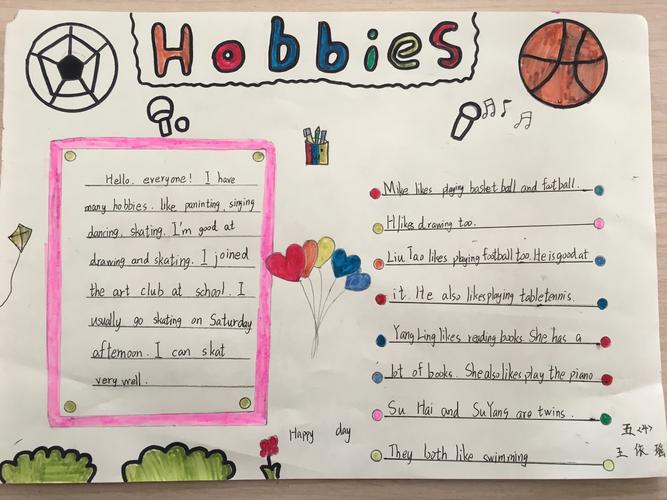 Hobbies
Hello. everyone! I have
many hobbies. like paninting, singing
dancing, skating. I'm good at
drawing and skating. I joined
the art club at school. I
usually go skating on Saturday
afternoon. I can skat
very well.
Mike likes playing basketball and football.
H likes drawing too.
Liu Tao likes playing football too. He is good at
it. He also likes playing table tennis.
Yang Ling likes reading books. She has a
lot of books. She also likes play the piano
Su Hai and Su Yang are twins.
They both like swimming
Happy day
五〈4〉
王依瑶